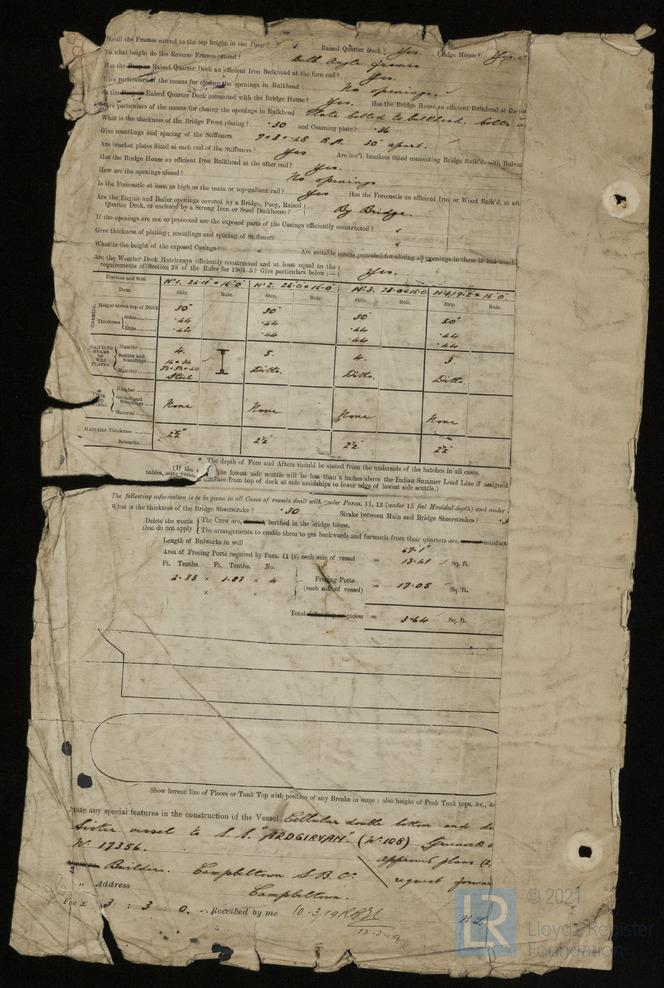 Do all the Frames extend to the top height in the Poop? " Raised Quarter Deck? Yes. Bridge House?
To what height do the Reverse Frames extend? Bulb Angle frames
Has the Poop or Raised Quarter Deck an efficient Iron Bulkhead at the fore end? Yes.
Give particulars of the means for closing the openings in Bulkhead No openings.
Is the Poop or Raised Quarter Deck connected with the Bridge House? Yes. Has the Bridge House an efficient Bulkhead at the
Give particulars of the means for closing the openings in Bulkhead Plate bolted to bulkhead. bolts
What is the thickness of the Bridge Front plating? .30 and Coaming plate? .36
Give scantlings and spacing of the Stiffeners 30" apart.
Are bracket plates fitted at each end of the Stiffeners? Yes Are hor'l. brackets fitted connecting Bridge Bulk'd. with Bulwark
Has the Bridge House an efficient Iron Bulkhead at the after end? Yes.
How are the openings closed? No openings
Is the Forecastle at least as high as the main or top-gallant rail? Yes Has the Forecastle an efficient Iron or Wood Bulk'd. at aft
Are the Engine and Boiler openings covered by a Bridge, Poop, Raised
Quarter Deck, or enclosed by a Strong Iron or Steel Deckhouse? By Bridge.
If the openings are not so protected are the exposed parts of the Casings efficiently constructed? "
Give thickness of plating; scantlings and spacing of Stiffeners "
What is the height of the exposed Casings? " Are suitable means provided for closing all openings in them in bad weather
Are the Weather Deck Hatchways efficiently constructed and at least equal to the
requirements of Section 28 of the Rules for 1904-5? Give particulars below:— Yes.
Position and Size No. 1. 16'0" No. 2. 26'0" × 16'0" No. 3. 28'0 × 16'0 No. 4 × 16'0"
Item. Ship. Rule. Ship. Rule. Ship. Rule. Ship. Rule.
COAMING Height above top of Deck 30" 30" 30" 30"
Thickness Sides .44 .44 .44 .44
Ends .44 .44 .44 .44
Number 4. 5. 4. 3
Section and Scantlings I
Material Steel Ditto. Ditto. Ditto
Number
Section and Scantlings None None None None
Material
Hatches Thickness 2½" 2½ 2½ 2½
Remarks
* The depth of Fore and Afters should be stated from the underside of the hatches in all cases.
(If the the lowest side scuttle will be less than 6 inches above the Indian Summer Load Line if assigned
tables, distance from top of deck at side amidships to lower edge of lowest side scuttle.)
The following information is to be given in all Cases of vessels dealt with under Paras. 11, 12 (under 15 feet Moulded depth) and under
What is the thickness of the Bridge Sheerstrake? .30 Strake between Main and Bridge Sheerstrakes?
Delete the words The Crew are, berthed in the bridge house.
that do not apply The arrangements to enable them to get backwards and forwards from their quarters are,
Length of Bulwarks in well 67.
Area of Freeing Ports required by Para. 11 each side of vessel = 13.41 Sq. ft.
Ft. Tenths. Ft. Tenths. No.
2.33 × 1.83 × 4 Freeing Ports (each side of vessel) = 17.05 Sq. ft.
× ×
Total excess = 3.64 Sq. ft.
Show hereon line of Floors or Tank Top with position of any Breaks in same: also height of Peak Tank tops, &c.,
State any special features in the construction of the Vessel Cellular double bottom and
Sister vessel to S.S. "ARDGIRVAN" (No. 108) Greenock
No. 17356. approved plans
Builders. Campbeltown S.B. Co. request
" Address Campbeltown.
Fee £ 3 : 3 : 0. Received by me 10.3.19
LR © 2021
Lloyd's Register
Foundation